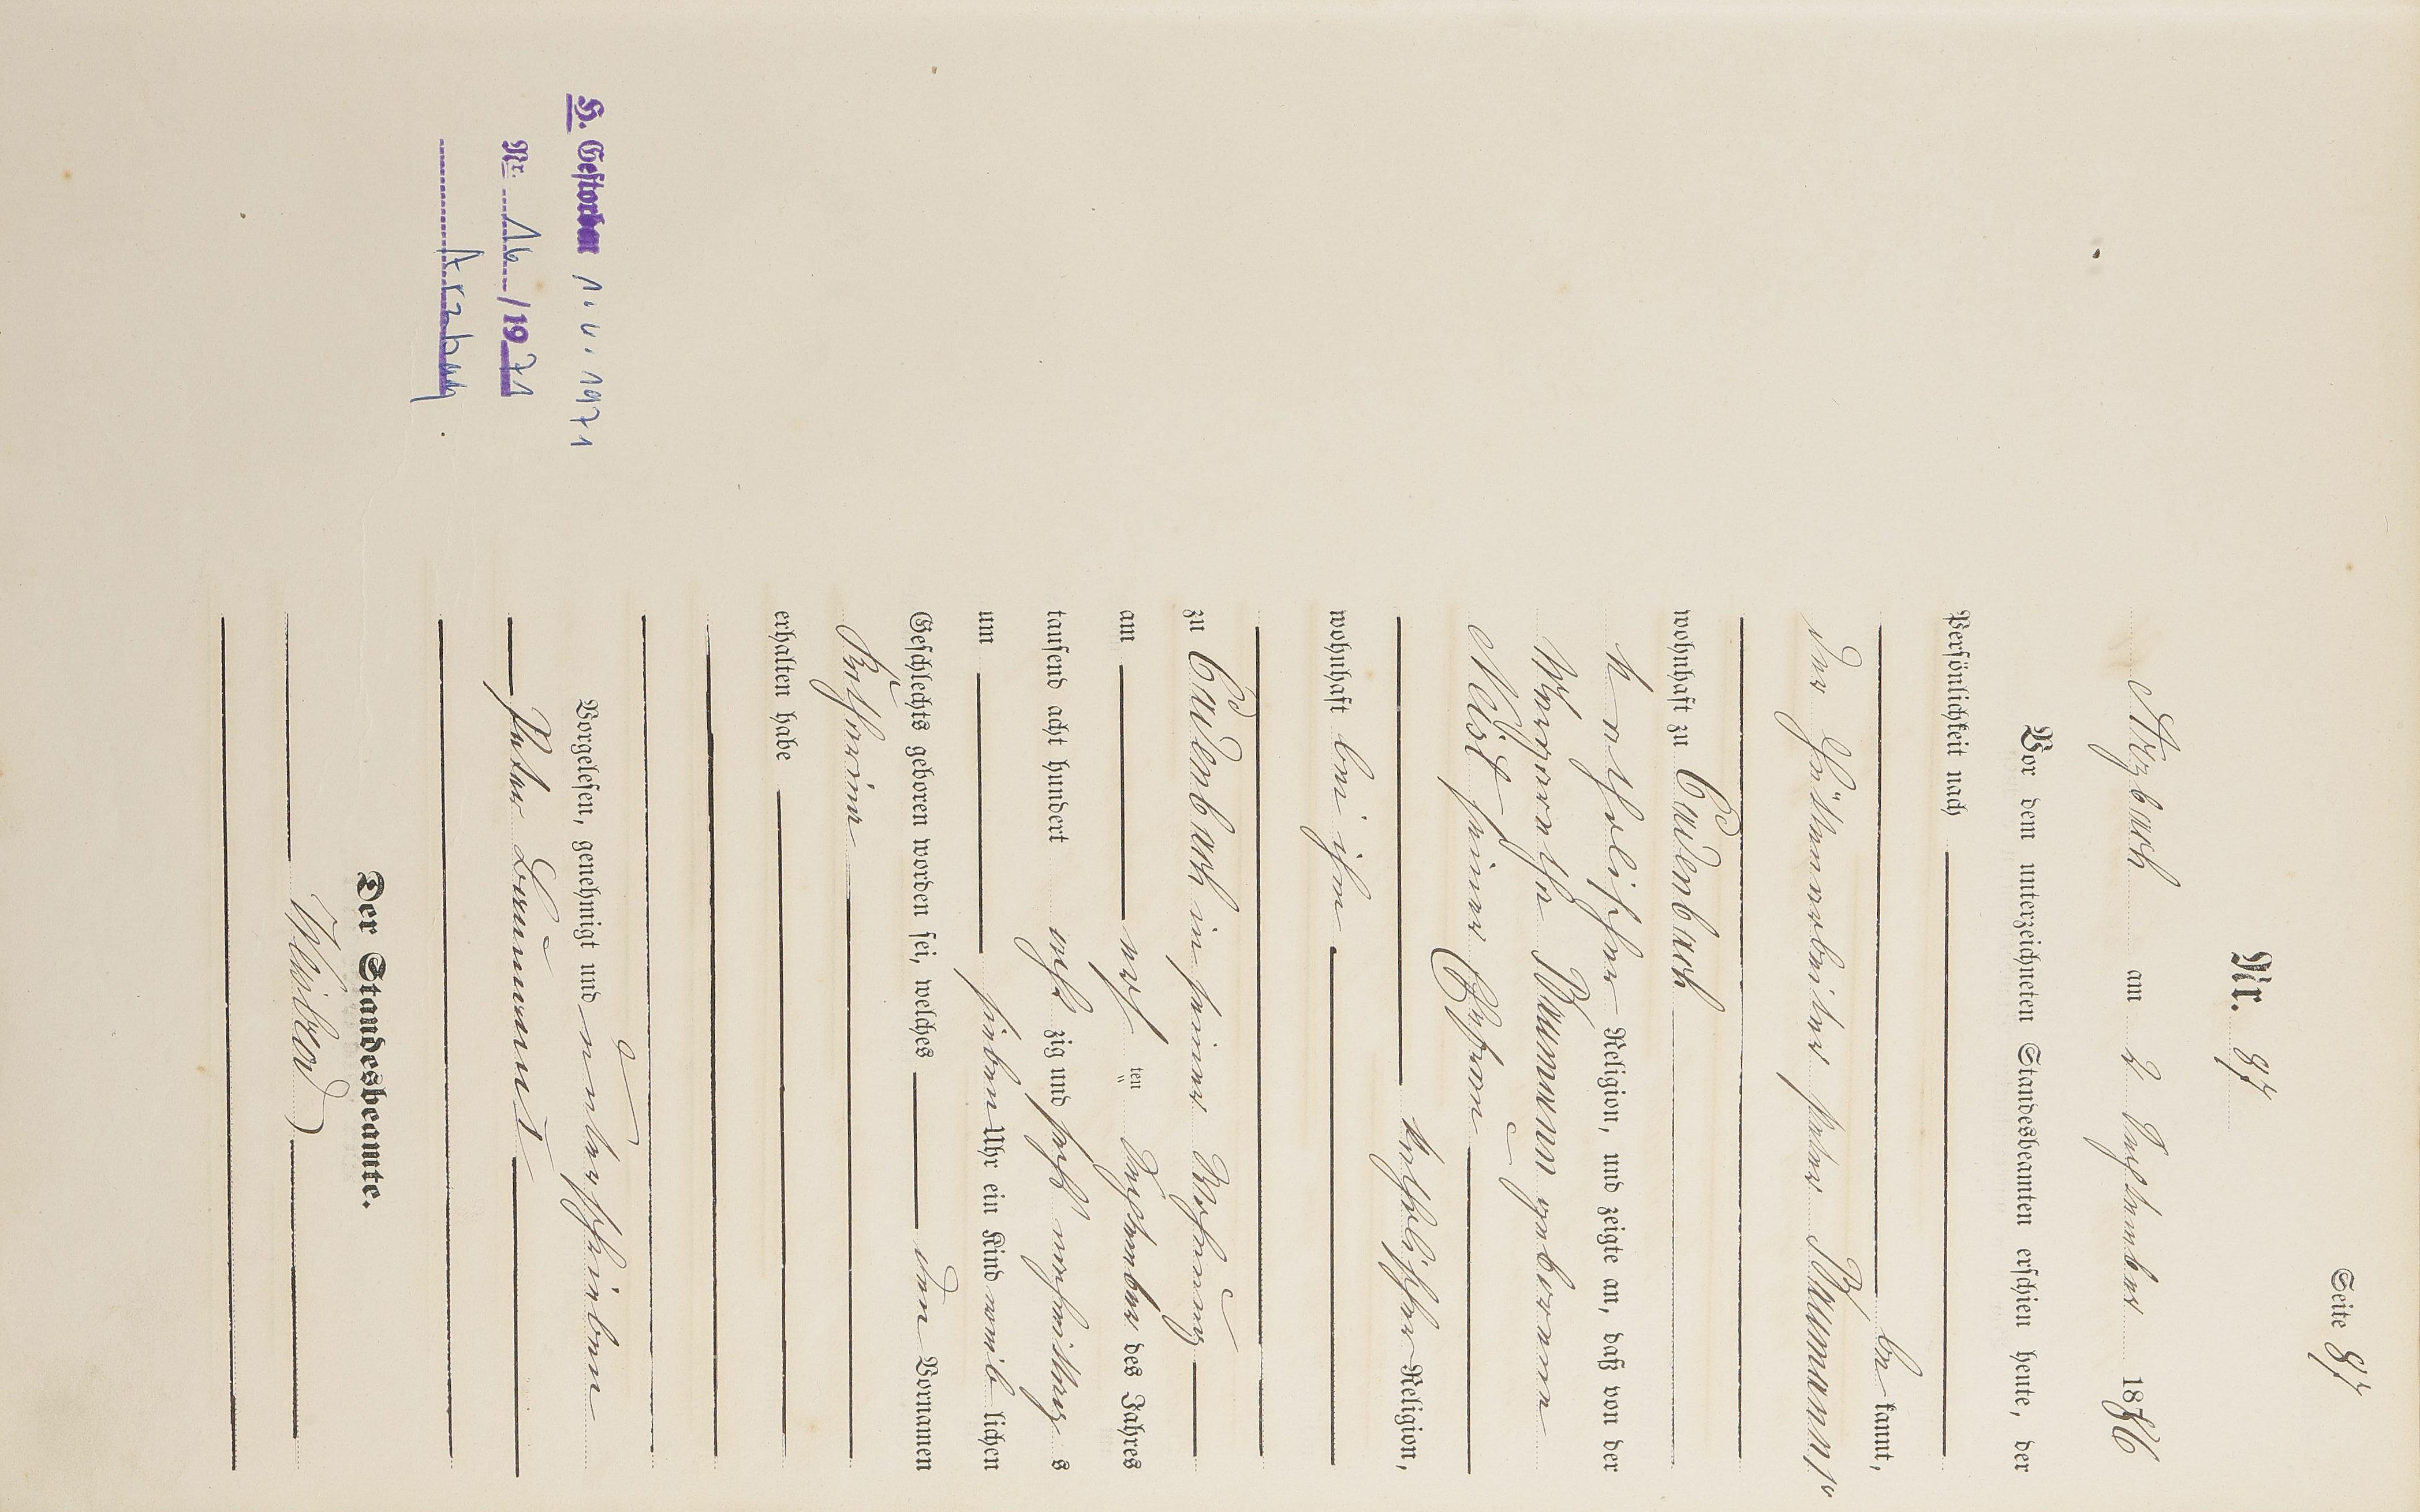 Seite 87
Nr. 87
Arzbach am 2 September 1886
Vor dem unterzeichneten Standesbeamten erschien heute, der
Persönlichkeit nach
be kannt,
der Hüttenarbeiter Peter Baumann
wohnhaft zu Cadenbach
katholischer Religion, und zeigte an, daß von der
Margaretha Baumann geborenen
Neist seiner Ehefrau
katholischer Religion,
wohnhaft bei ihm
zu Cadenbach in seiner Wohnung
am ten September des Jahres
tausend acht hundert acht zig und sechs vormittags
um sieben Uhr ein Kind weib lichen
Geschlechts geboren worden sei, welches den Vornamen
Katharina
erhalten habe
Vorgelesen, genehmigt und unterschrieben
Peter Baumann
Der Standesbeamte.
H. Gestorben 1.4.1971
Nr. 16/1971
Arzbach